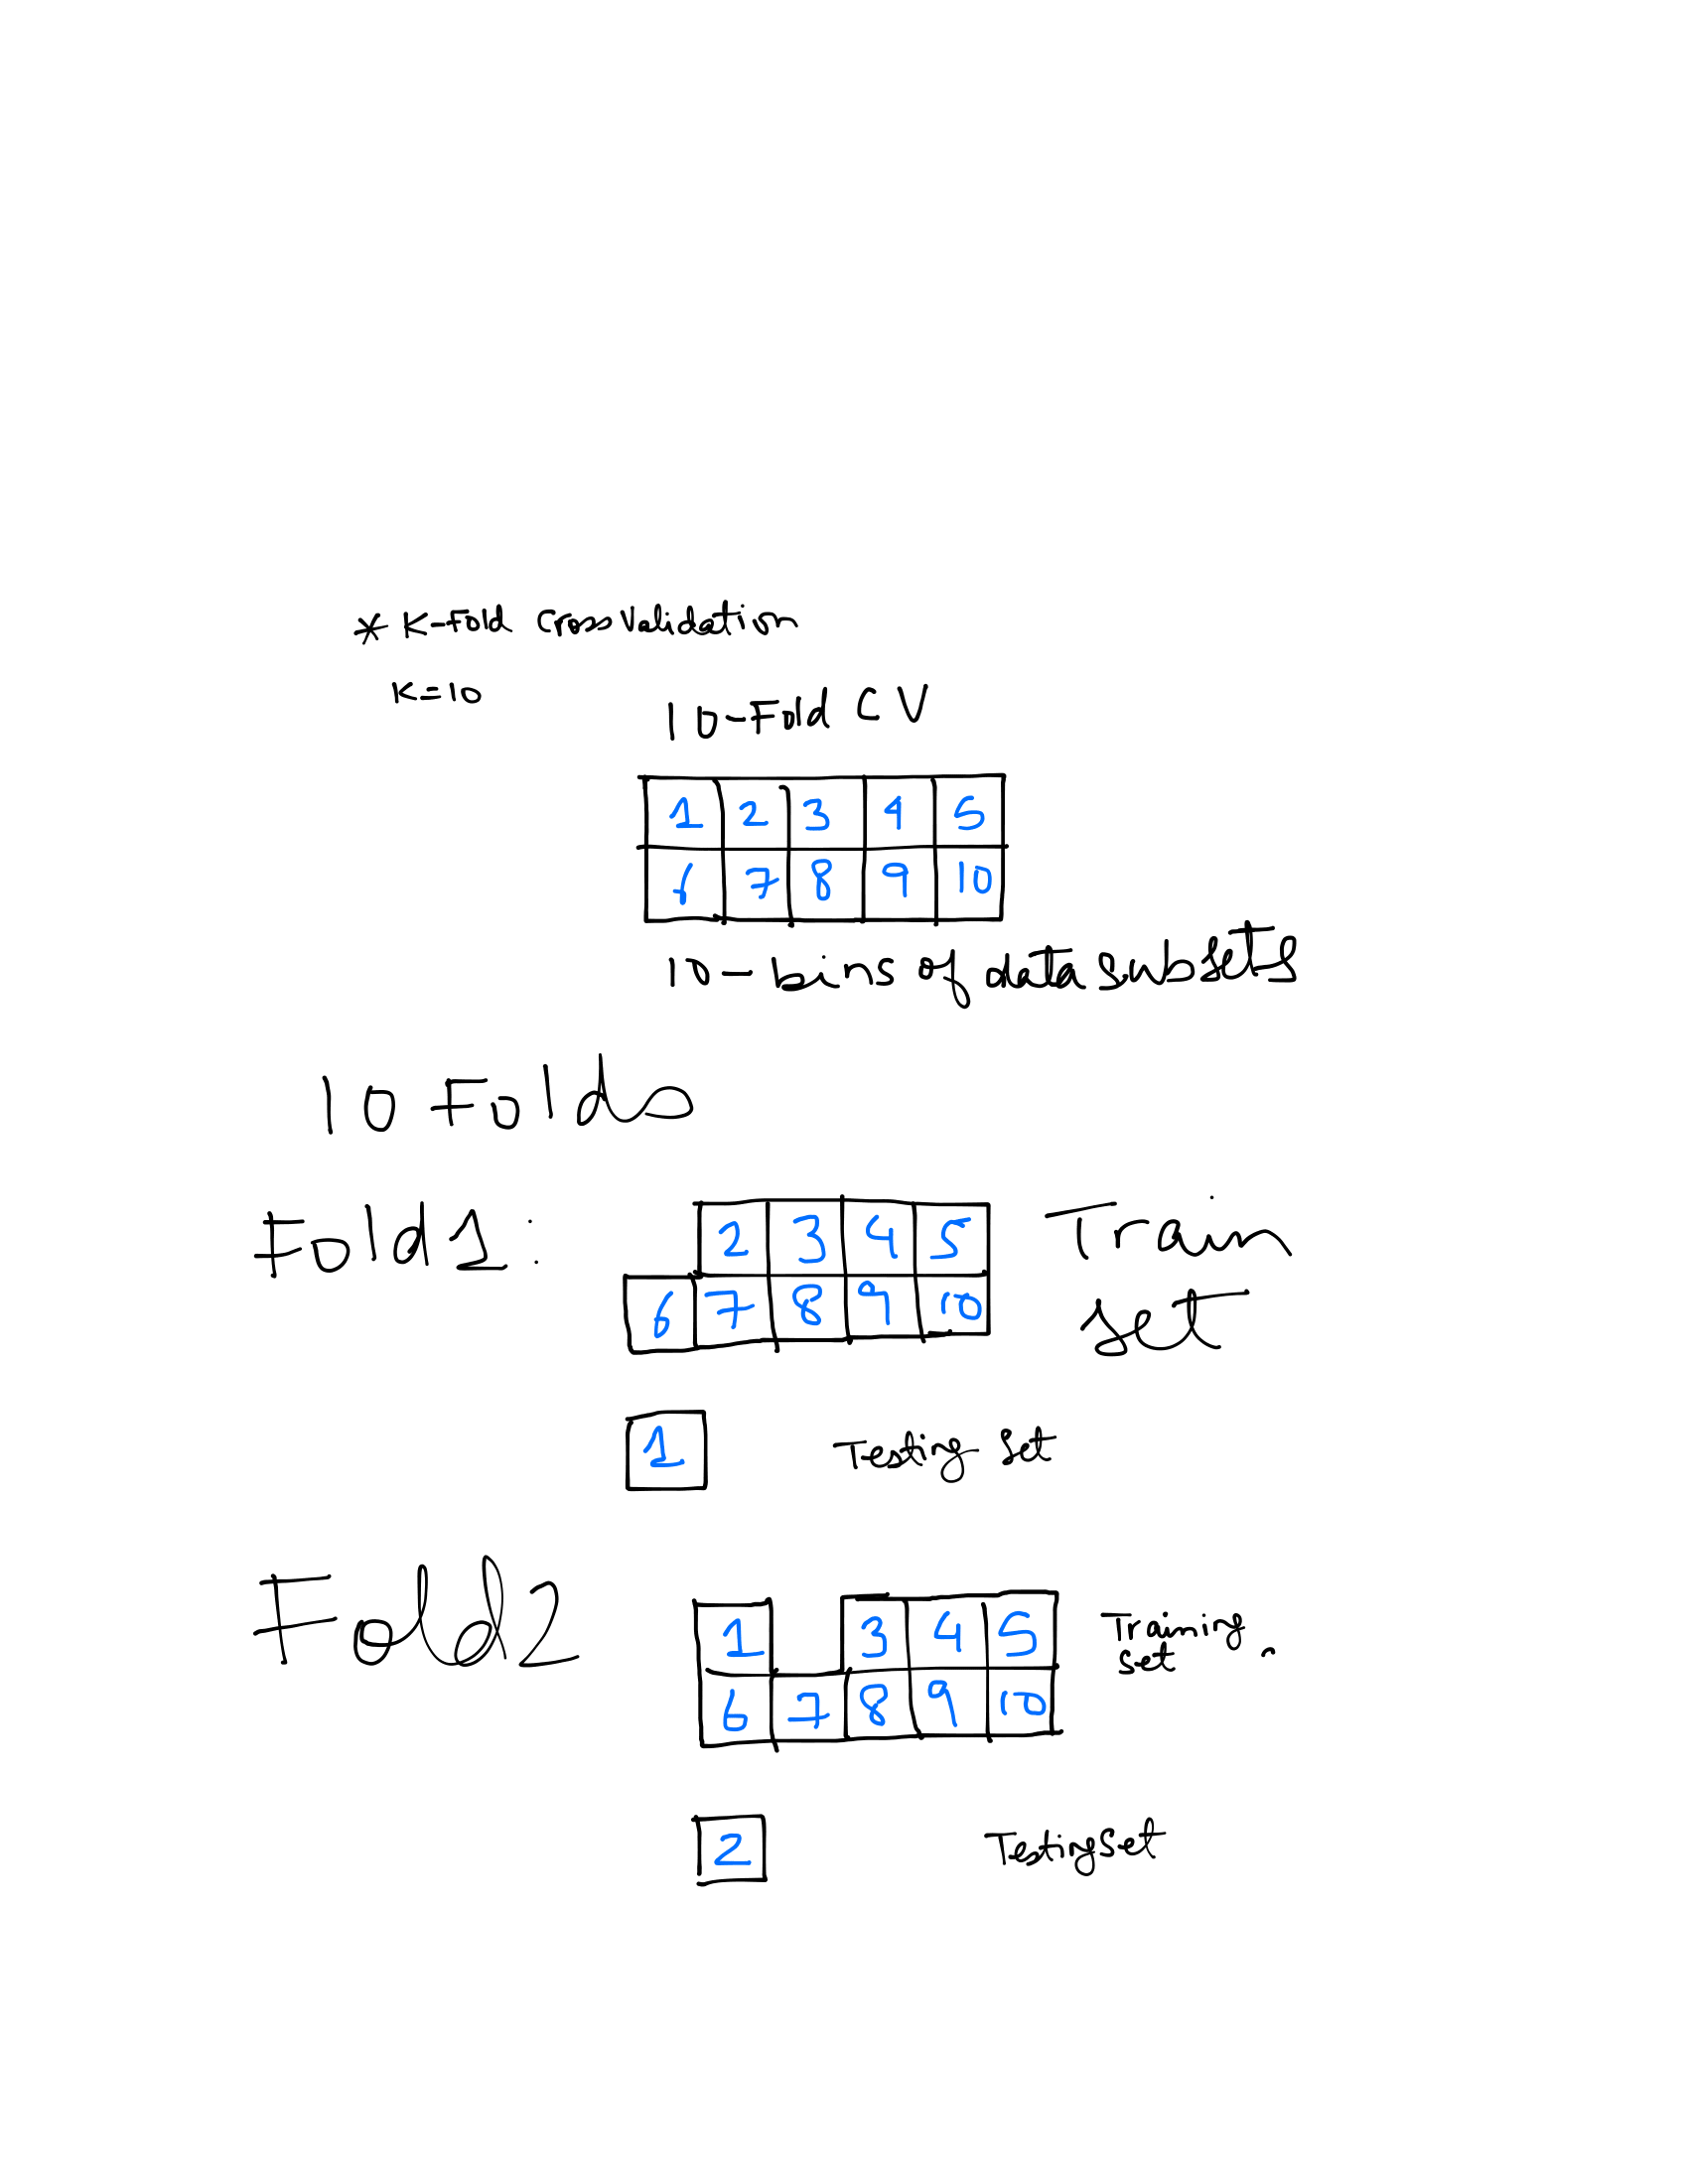 * K-Fold Cross Validation
K=10
10-Fold CV
1 2 3 4 5
6 7 8 9 10
10-bins of data subsets
10 Folds
Fold1:
2 3 4 5
6 7 8 9 10
Train
set
1
Testing Set
Fold2
1 3 4 5
6 7 8 9 10
Training
set
2
Testing Set